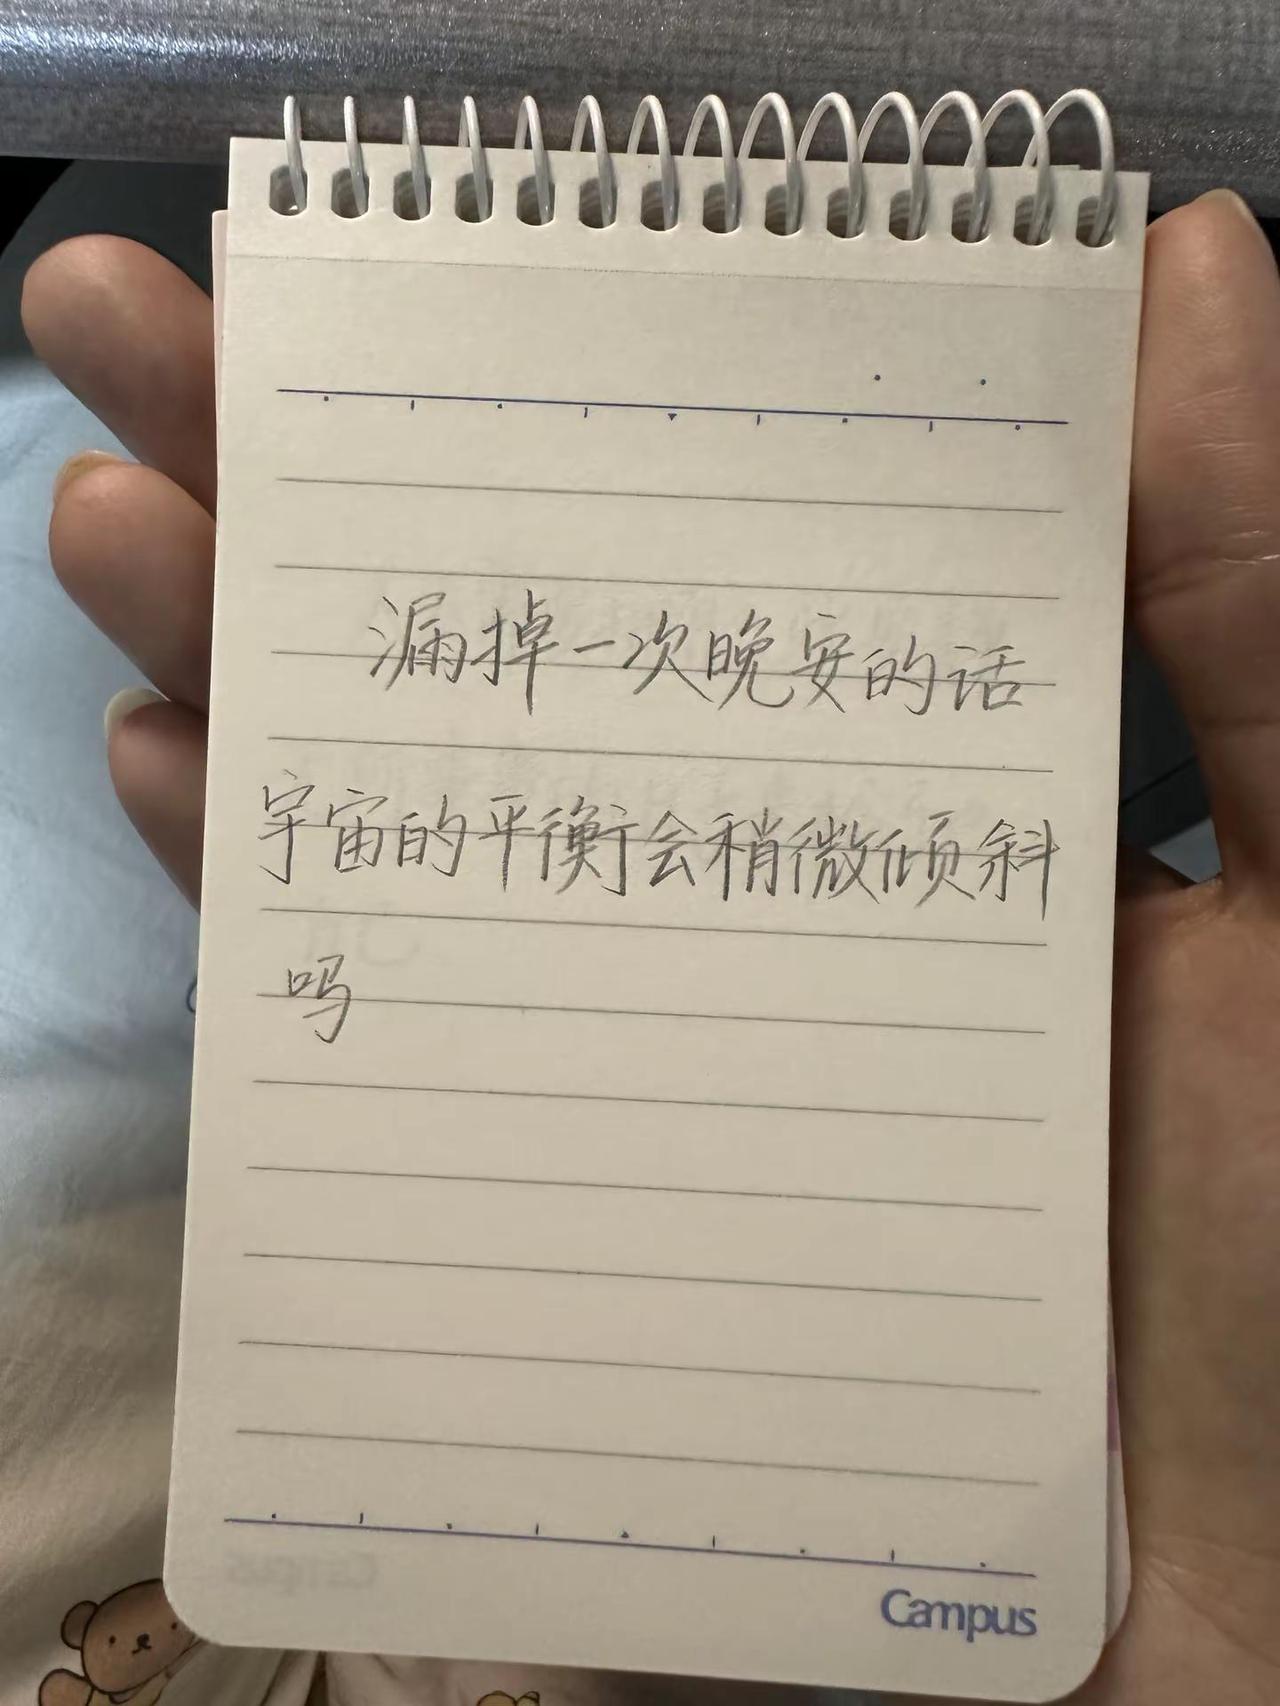 漏掉一次晚安的话
宇宙的平衡会稍微倾斜
吗
Campus